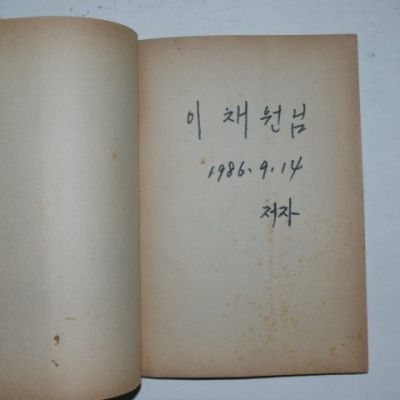 이 채원님
1986. 9. 14
저자